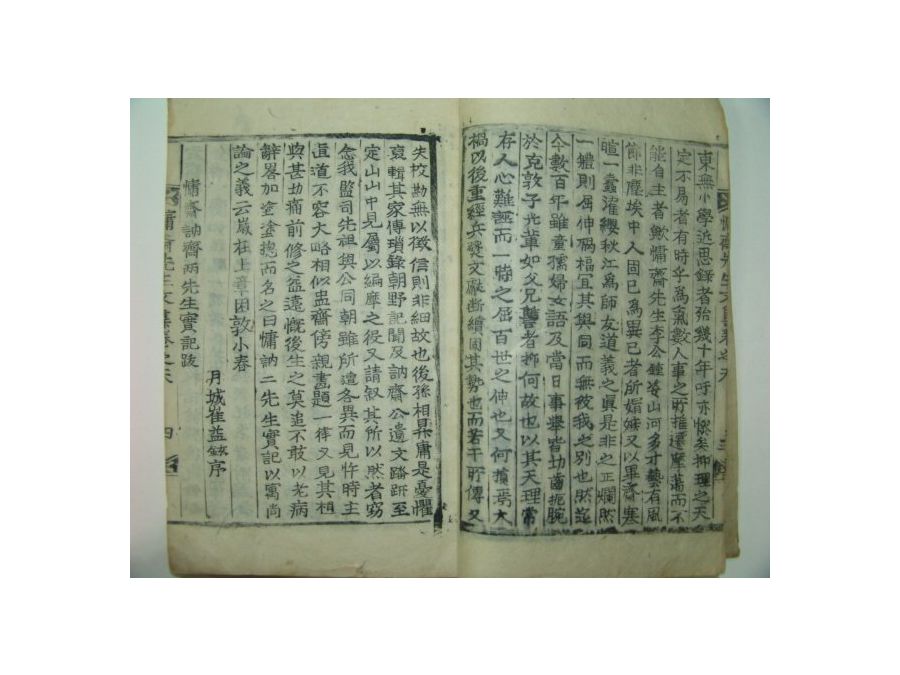 東無小學近思錄者殆幾十年吁亦慘矣抑理之天
定不易者有時乎爲氣數人事之所推遷摩蕩而不
能自主者歟慵齋先生李公鍾苓山河多才藝有風
節非塵埃中人固已爲異己者所媢嫉又以畢齋寒
暄一蠹濯纓秋江爲師友道義之眞是非之正爛然
一軆則屈伸禍福宜其與同而無彼我之別也然迄
今數百年雖童孺婦女語及當日事擧皆切齒扼腕
於克敦子光輩如父兄讐者抑何故也以其天理常
存人心難誣而一時之屈百世之伸也又何損焉大
禍以後重經兵燹文獻斷續固其勢也而若干所傳又
慵齋先生文集卷之六
失校勘無以徵信則非細故也後孫相昊庸是憂懼
裒輯其家傳瑣錄朝野記聞及訥齋公遺文踏跰至
定山山中見屬以編摩之役又請叙其所以然者窃
念我監司先祖與公同朝雖所遭各異而見忤時主
直道不容大略相似盅齋傍親書題一律又見其相
與甚切痛前修之益遠慨後生之莫追不敢以老病
辭畧加塗塗摠而名之曰慵訥二先生實記以寓尙
論之義云歲在上章困敦小春
月城崔益鉉序
慵齋訥齋兩先生實記跋
慵齋先生文集卷之六 四